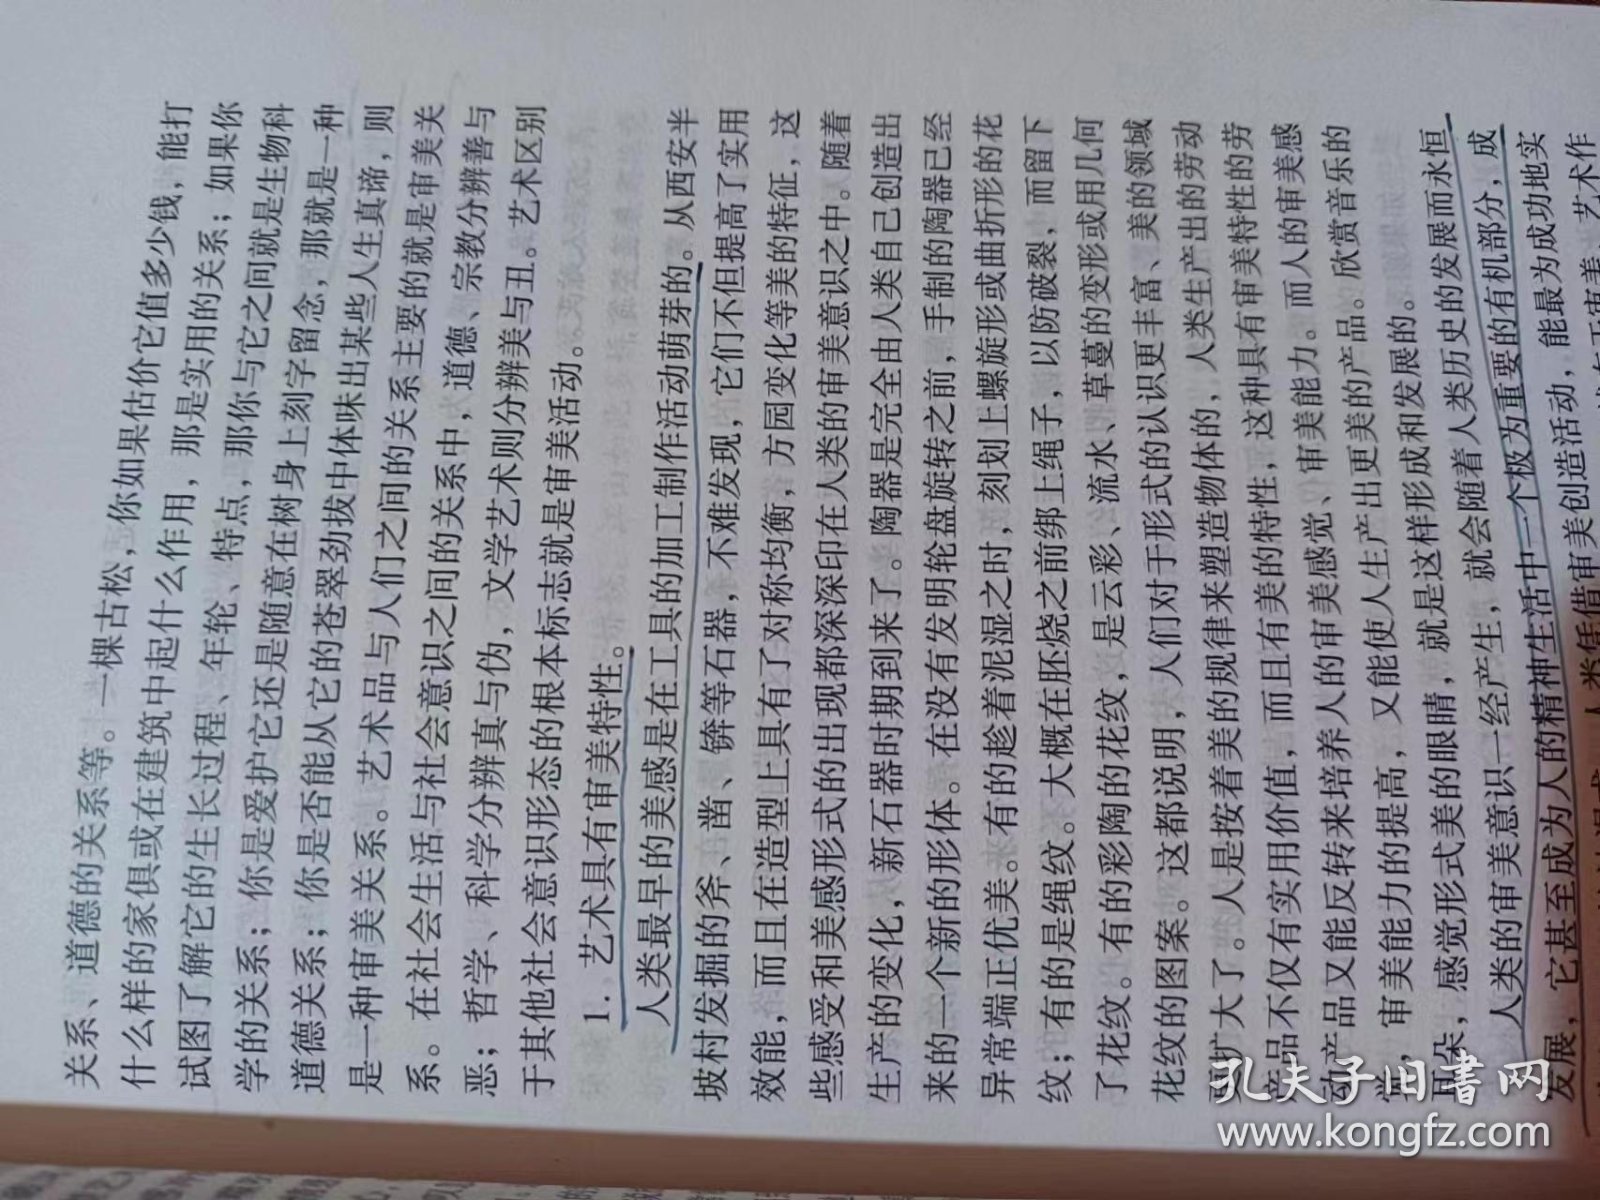 关系、道德的关系等。一棵古松，你如果估价它值多少钱，能打
什么样的家俱或在建筑中起什么作用，那是实用的关系；如果你
试图了解它的生长过程、年轮、特点，那你与它之间就是生物科
学的关系；你是爱护它还是随意在树身上刻字留念，那就是一种
道德关系；你是否能从它的苍翠劲拔中体味出某些人生真谛，则
是一种审美关系。艺术品与人们之间的关系主要的就是审美关
系。在社会生活与社会意识之间的关系中，道德、宗教分辨善与
恶；哲学、科学分辨真与伪，文学艺术则分辨美与丑。艺术区别
于其他社会意识形态的根本标志就是审美活动。
1．艺术具有审美特性。
人类最早的美感是在工具的加工制作活动萌芽的。从西安半
坡村发掘的斧、凿、锛等石器，不难发现，它们不但提高了实用
效能，而且在造型上具有了对称均衡，方园变化等美的特征，这
些感受和美感形式的出现都深深印在人类的审美意识之中。随着
生产的变化，新石器时期到来了。陶器是完全由人类自己创造出
来的一个新的形体。在没有发明轮盘旋转之前，手制的陶器已经
异常端正优美。有的趁着泥湿之时，刻划上螺旋形或曲折形的花
纹；有的是绳纹。大概在胚烧之前绑上绳子，以防破裂，而留下
了花纹。有的彩陶的花纹，是云彩、流水、草蔓的变形或用几何
花纹的图案。这都说明，人们对于形式的认识更丰富、美的领域
更扩大了。人是按着美的规律来塑造物体的，人类生产出的劳动
产品不仅有实用价值，而且有美的特性，这种具有审美特性的劳
动产品又能反转来培养人的审美感觉、审美能力。而人的审美感
觉，审美能力的提高，又能使人生产出更美的产品。欣赏音乐的
耳朵，感觉形式美的眼睛，就是这样形成和发展的。
人类的审美意识一经产生，就会随着人类历史的发展而永恒
发展，它甚至成为人的精神生活中一个极为重要的有机部分，成
人类凭借审美创造活动，能最为成功地实
艺术作
孔夫子旧书网
www.kongfz.com